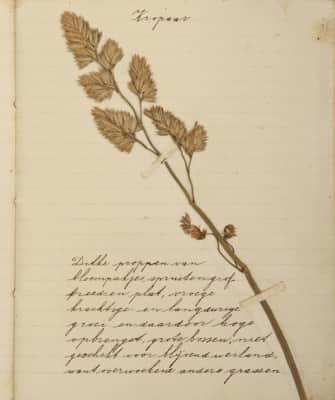 Kropaar
Dikke proppen van
bloempakjes, spruiten grof
breed en plat, vroege
krachtige en langdurige
groei en daardoor hooge
opbrengst, grote bossen, niet
geschikt voor blijvend weiland,
want overwoekerd andere grassen